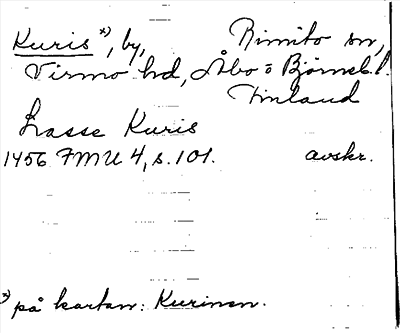 Kuris *), by, Rimito sn,
Virmo hd, Åbo o Björneb. l.
Finland
Lasse Kuris
1456 FMU 4, s. 101. avskr.
*) på kartan: Kurinen.